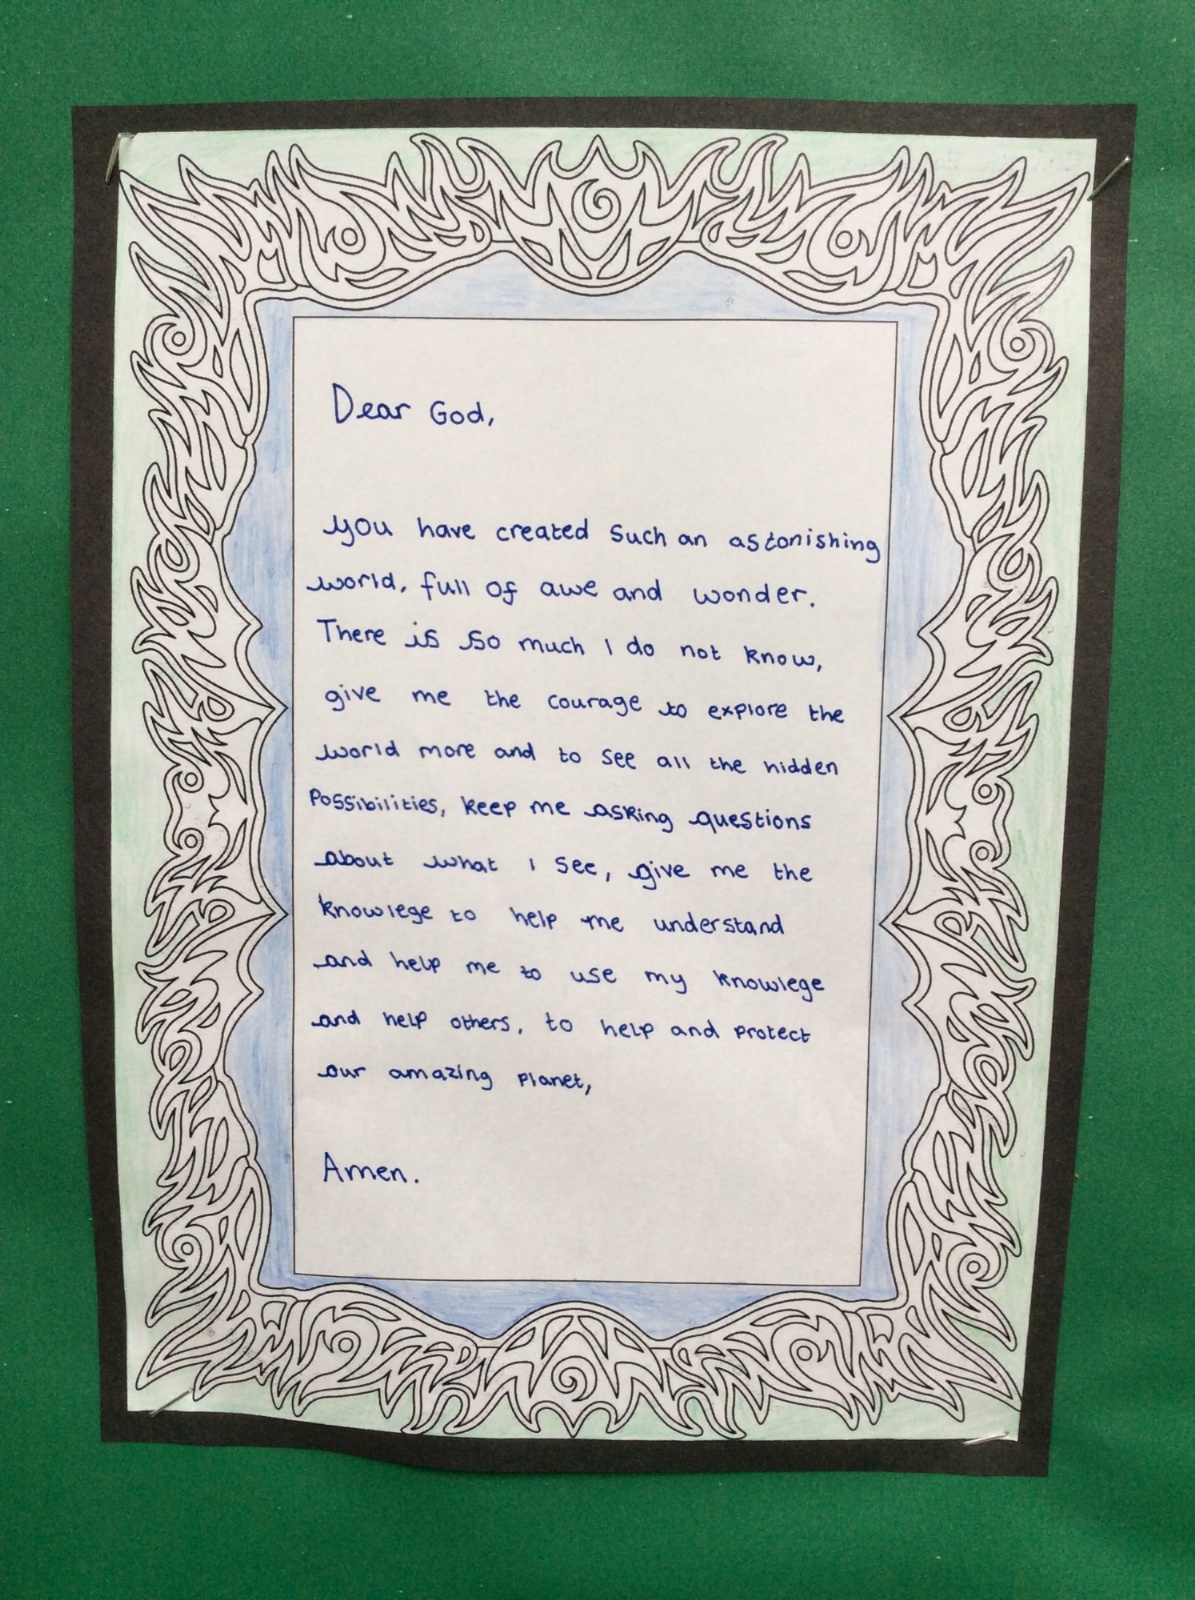 Dear God,
you have created such an astonishing
world, full of awe and wonder.
There is so much I do not know,
give me the courage to explore the
world more and to see all the hidden
Possibilities, keep me asking questions
about what I see, give me the
knowlege to help me understand
and help me to use my knowlege
and help others, to help and protect
our amazing planet,
Amen.